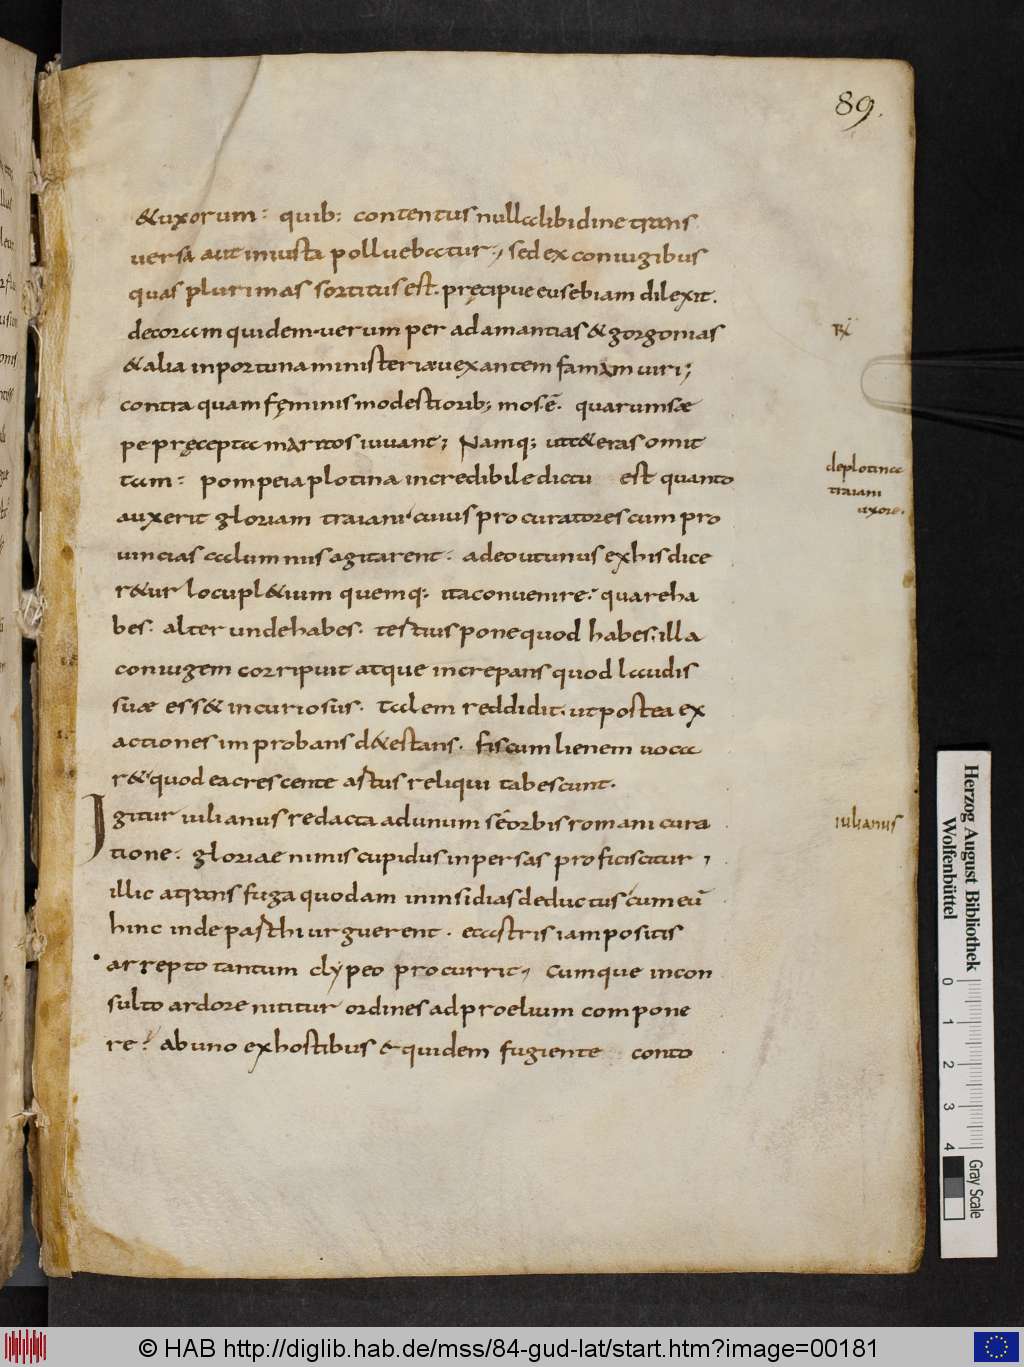 89.
&uxorum: quib: contentus nulla libidine trans
versa aut iniusta polluebatur; sed ex coniugibus
quas plurimas sortitus est. pręcipue eusebiam dilexit.
decoram quidem. uerum per adamantias & gorgonias
& alia inportuna ministeria uexantem famam uiri;
contra quam fęminis modestiorib; mos ē. quarum sæ
pe pręcepta maritos iuuant; Namq; ut c&eras omit
tam: pompeia plotina incredibile dictu est quanto
auxerit gloriam traiani cuius procuratores cum pro
uincias calumniis agitarent. adeo ut unus ex his dice
r&ur locupl&ium quemq: ita conuenire. quare ha
bes. alter unde habes. tertius pone quod habes. illa
coniugem corripuit atque increpans quod laudis
suæ ess& incuriosus. talem reddidit. ut postea ex
actiones improbans d&estans. fiscum lienem uoca
r& quod ea crescente artus reliqui tabescunt.
Igitur iulianus redacta ad unum sē orbis romani cura
tione. gloriae nimis cupidus in persas proficiscitur,
illic a transfuga quodam in insidias deductus cum eū
hinc inde parthi urguerent. e castris iam positis
arrepto tantum clypeo procurrit, Cumque incon
sulto ardore nititur ordines ad proelium compone
re. ab uno ex hostibus & quidem fugiente conto
de plotina
traiani
uxore.
iulianus
Herzog August Bibliothek
Wolfenbüttel
0 1 2 3 4
Gray Scale
© HAB http://diglib.hab.de/mss/84-gud-lat/start.htm?image=00181